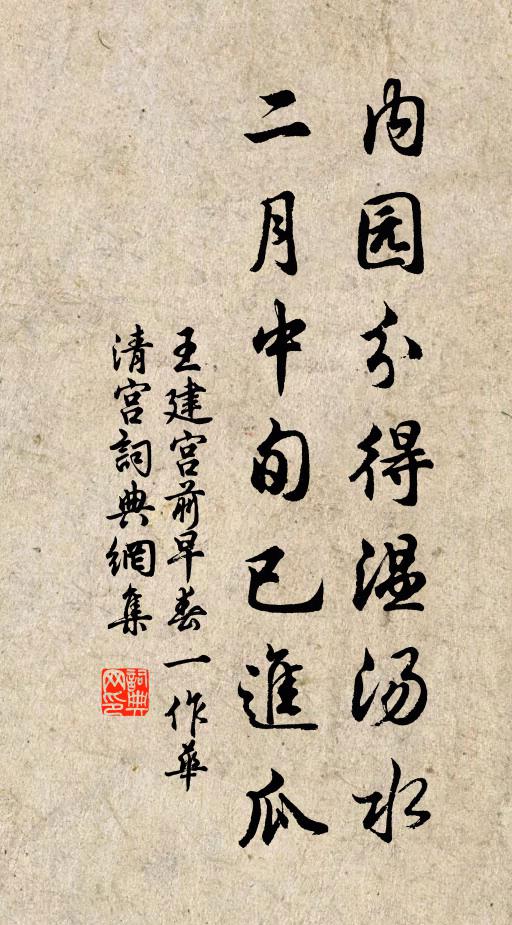 内园分得温汤水
二月中旬已進瓜
王建宫前早春一作華
清宫詞典網集
詞典网印